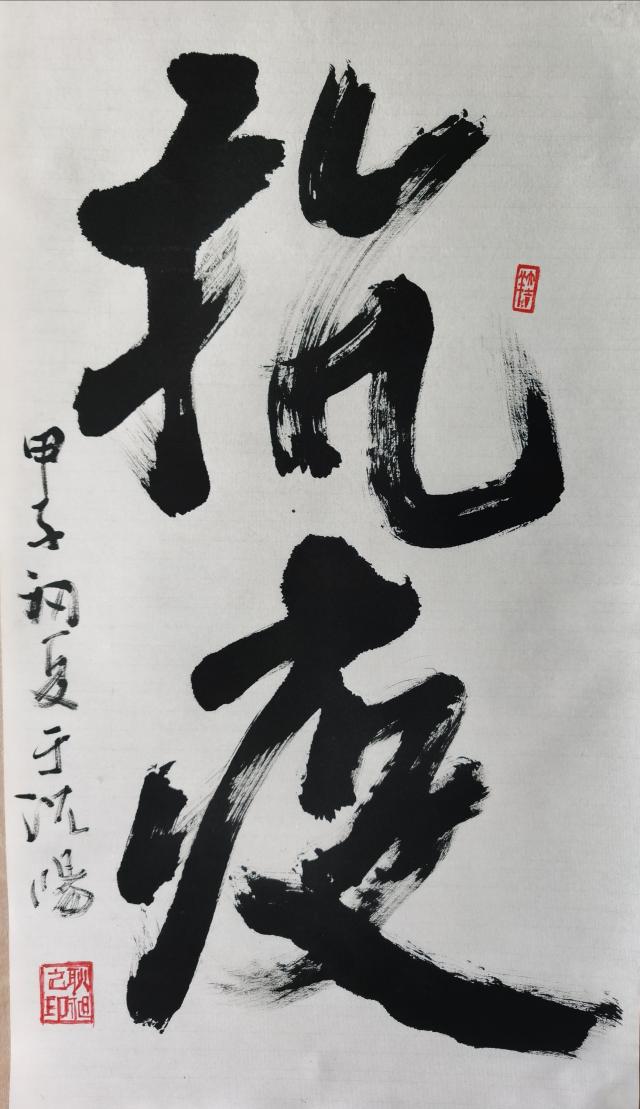 抗疫
甲子初夏于沈陽